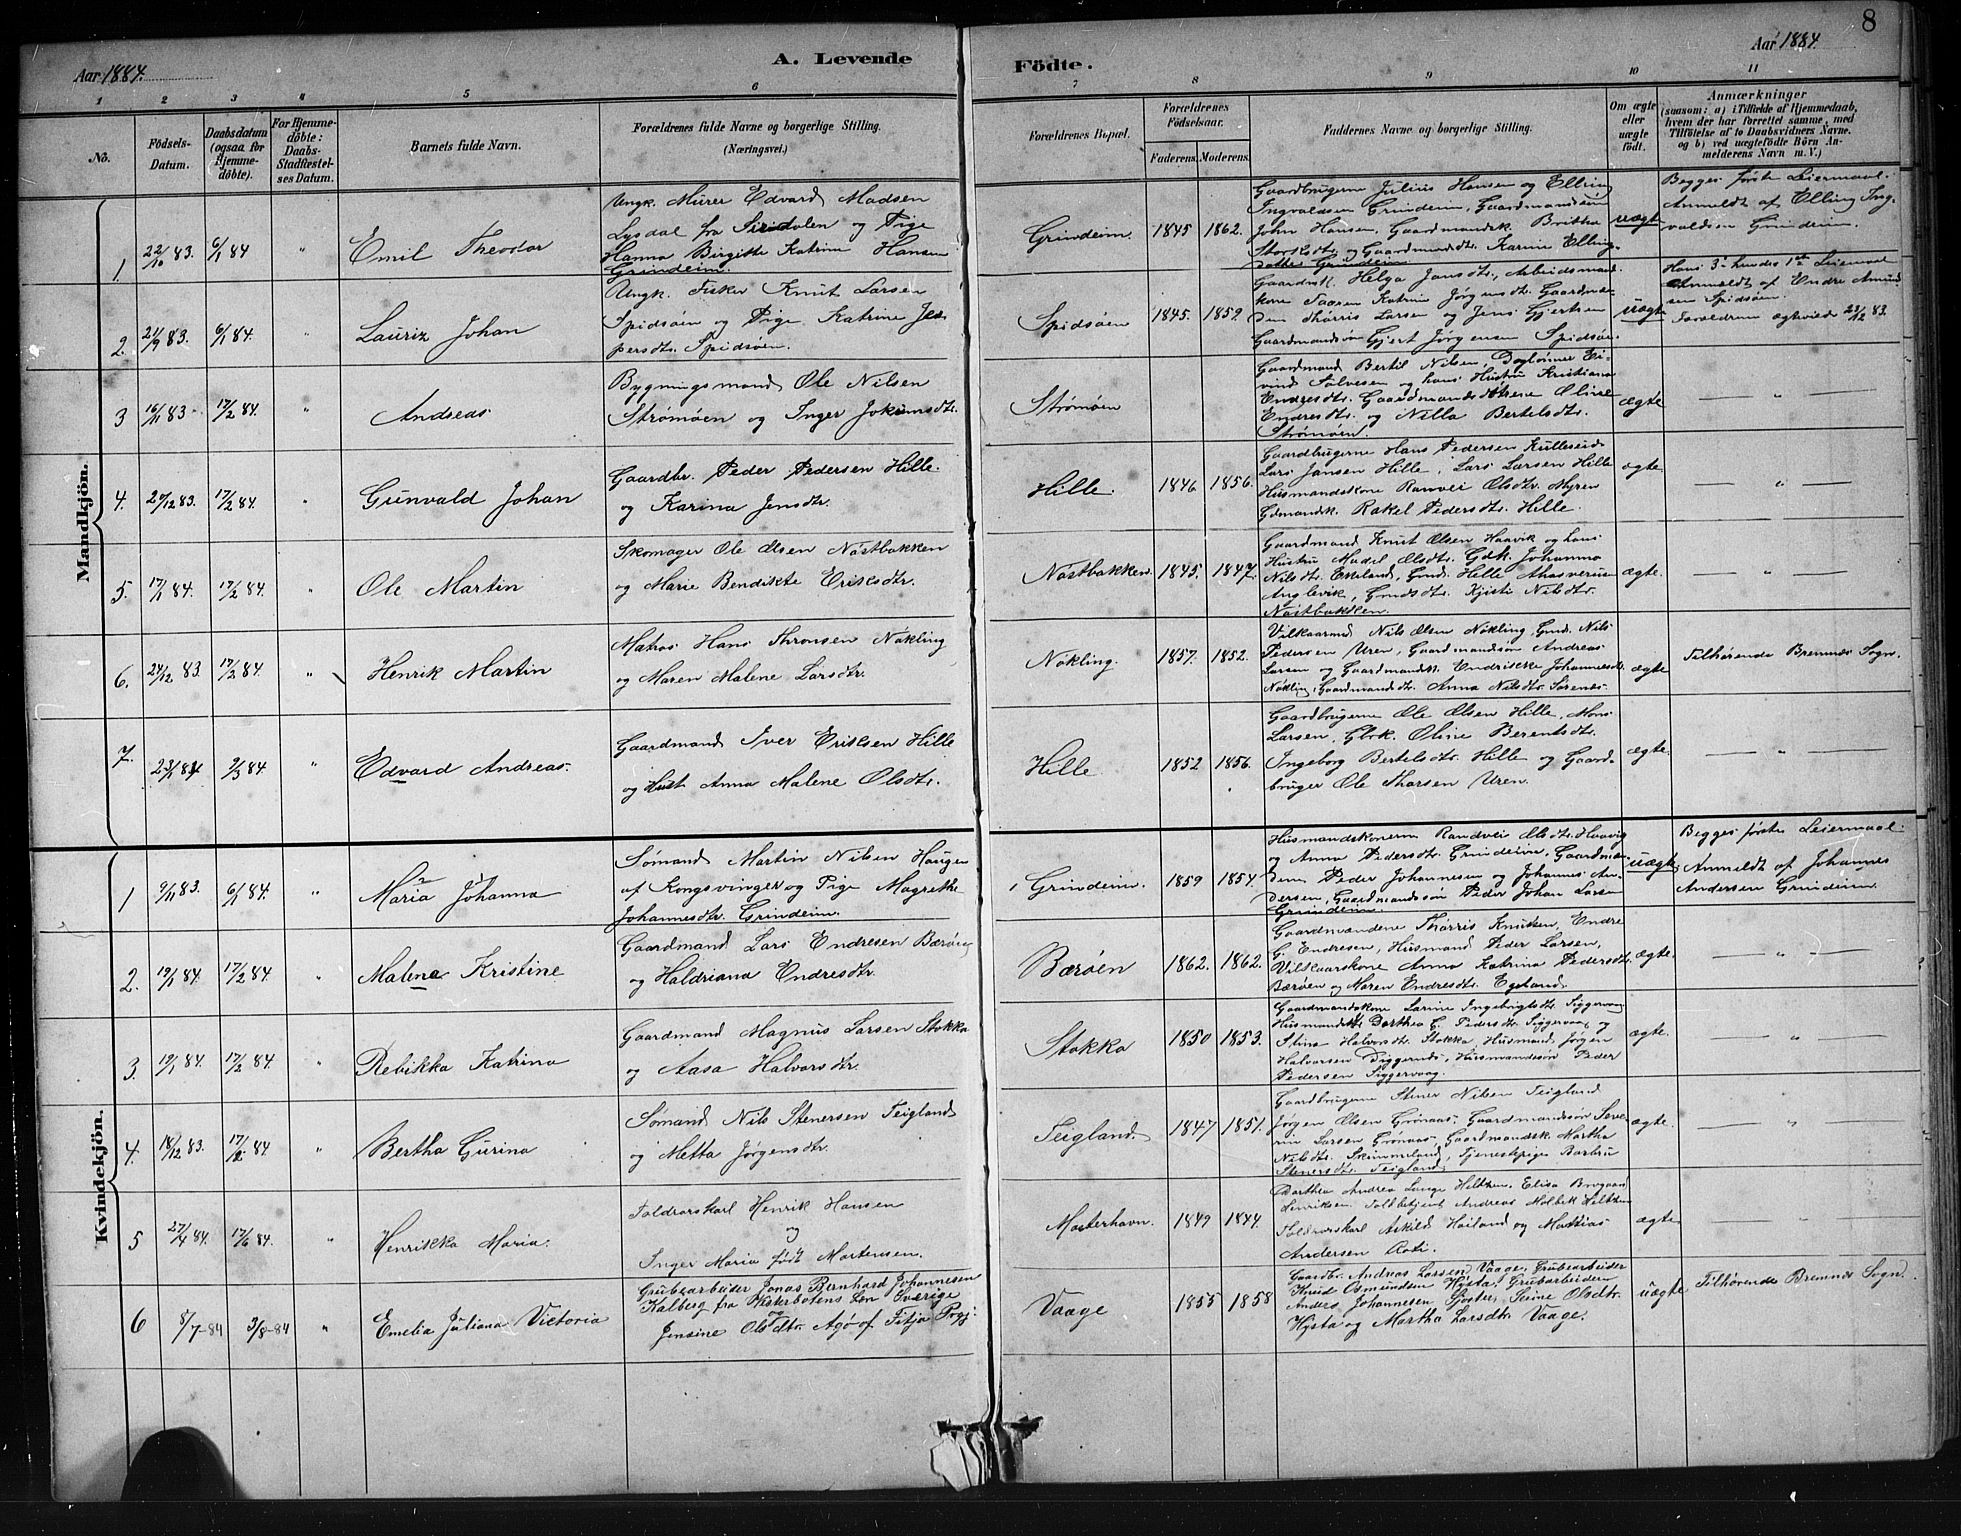 8
Aar 1884.
A. Levende
Födte.
Aar 1884.
1 2 3 4 5 6 7 8 9 10 11
No.
Födsels-
Datum.
Daabsdatum
(ogsaa for
Hjemme-
döbte).
For Hjemme-
döbte:
Daabs-
Stadfæstel-
ses Datum.
Barnets fulde Navn.
Forældrenes fulde Navne og borgerlige Stilling.
(Næringsvei.)
Forældrenes Bopæl.
Forældrenes
Födselsaar.
Faderens. Moderens.
Faddernes Navne og borgerlige Stilling.
Om ægte
eller
uægte
födt.
Anmærkninger
(saasom: a) i Tilfælde af Hjemmedaab,
hvem der har forrettet samme, med
Tilföielse af to Daabsvidners Navne.
og b) ved uægtefödte Börn An-
melderens Navn m. V.)
Mandkjön.
1. 22/10 83. 6/1 84 " Emil Theodor
Ungk. Murer Edvard Madsen
Lysdal fra Siredalen og Pige
Hanna Birgitte Katrine Hansen
Grindeim.
Grindeim. 1845 1862.
Gaardbrugerne Julius Hansen og Elling
Ingvaldsen Grindeim, Gaardmandssøn
John Hansen, Gaardmandsk. Brittha
Storksdtr. og Gaardmandsdtr. Karine Ellings
datter Grindeim
uægte
Begges første Leiermaal.
Anmeldt af Elling Ing-
valdsen Grindeim.
2. 21/9 83. 6/1 84. " Lauriz Johan
Ungk. Fisker Knut Larsen
Spidsøen og Pige Katrine Jes-
persdtr. Spidsøen.
Spidsøen 1845. 1859.
Gaardmk. Helga Jansdtr., Arbeidsmand
kone Taaren Katrine Jørgensdtr. Gaardmæn-
den Thorris Larsen og Jens Gjertsen
Gaardmandssøn Gjert Jørgensen Spidsøe
uægte
Hans 3. hendes 1ste Leiermaal
Anmeldt af Endre Amund
sen Spidsøen.
Forældrene ægteviede 28/12 83.
3 16/11 83 17/2 84. " Andreas
Bygningsmand Ole Nilsen
Strømøen og Inger Jokumsdtr.
Strømøen
Gaardmand Bertil Nilsen, Daglønner Ei-
vind Salvesen og hans Hustru Kristiana
Endresdtr. Gaardmandsdøtrene Oline
Endresdtr. og Nilla Bertelsdtr.
Strømøen.
ægte — " —
4. 20/12 83. 17/2 84. " Gunvald Johan
Gaardbr. Peder Pedersen Hille.
og Karina Jensdtr.
Hille. 1846 1856.
Gaardbrugerne Hans Pedersen Kulleseid
Lars Jansen Hille, Lars Larsen Hille
Husmandskone Ranvei Olsdtr. Myren
Gdmandsk. Rakel Pedersdtr. Hille.
ægte — " —
5. 17/1 84. 17/2 84. " Ole Martin
Skomager Ole Olsen Nøstbakken
og Marie Bendikte Eriksdtr.
Nøstbakken. 1845. 1847.
Gaardmand Knut Olsen Haavik og hans
Hustru Madel Olsdtr. Gdk. Johanna
Nilsdtr. Ekeland, Gmd. Hille Ahasverus
Anglevik, Gmdsdtr. Kjisti Nilsdtr.
Nøstbakken.
ægte. — " —
6. 24/12 83 17/2 84. " Henrik Martin
Matros Hans Thronsen Nøkling
og Maren Malene Larsdtr.
Nøkling. 1857. 1852.
Vilkaarmd Nils Olsen Nøkling, Gmd. Nils
Pedersen Uren, Gaardmandsøn Andreas
Larsen og Gaardmandsk. Endrikke Johannesdtr.
Nøkling, Gaardmandsdtr. Anna Nilsdtr. Sørenes.
ægte Tilhørende Bremnes Sogn.
7. 23/1 84 9/3 84. " Edvard Andreas.
Gaardmand Iver Eriksen Hille
og Hust Anna Malene Olsdtr.
Hille 1852 1856.
Gaardbrugerne Ole Olsen Hille, Mons
Larsen, Gbrk. Oline Berentsdtr.
Ingeborg Bertelsdtr. Hille og Gaard-
bruger Ole Thorsen Uren.
ægte. — " —
Kvindekjön.
1 9/11 83. 6/1 84. " Maria Johanna
Sømand Martin Nilsen Haugen
af Kongsvinger og Pige Magrethe
Johannesdtr. Grindeim.
Grindeim. 1859 1854.
Husmandskonerne Randvei Olsdtr. Haavig
og Anna Pedersdtr. Grindeim, Gaardmæn-
dene Peder Johannesen og Johannes An-
dersen, Gaardmandssøn Peder Johan Larsen
Grindeim
uægte
Begges første Leiermaal.
Anmeldt af Johannes
Andersen Grindeim.
2. 19/1 84. 17/2 84. " Malena Kristine
Gaardmand Lars Endresen Bærøen
og Haldriana Endresdtr.
Bærøen 1862. 1862.
Gaardmændene Thorris Knutsen, Endre
G. Endresen, Husmand Peder Larsen,
Vilkaarskone Anna Katrina Pedersdtr.
Bærøen og Maren Endresdtr. Egeland.
ægte. — " —
3. 19/1 84. 17/2 84. " Rebikka Katrina
Gaardmand Magnus Larsen Stokka
og Aasa Halvorsdtr.
Stokka 1850 1853.
Gaardmandskone Larine Ingebrigtsdtr. Siggervaag
Husmandsk. Dorthea G. Pedersdtr. Siggervaag og
Stina Halvorsdtr. Stokka, Husmand Jørgen
Halvorsen Diggernes, Husmandssøn Peder
Pedersen Siggervaag.
ægte. — " —
4. 18/12 83. 17/2 84 " Bertha Gurina
Sømand Nils Stenersen Teigland
og Metta Jørgensdtr.
Teigland 1847 1851.
Gaardbrugerne Stener Nilsen Teigland
Jørgen Olsen Grønaas, Gaardmandssøn Seve-
rin Larsen Grønaas, Gaardmandsk. Martha
Nilsdtr. Skimmeland, Tjenestepige Barbru
Stenersdtr. Teigland.
ægte. — " —
5 27/4 84. 17/6 84. " Henrikka Maria.
Toldrorskarl Henrik Hansen
og
Inger Maria født Mortensen.
Mosterhavn. 1849 1844.
Dorthea Andrea Lange Hiltzen, Elisa Brogaard
Henriksen. Toldbetjent Andreas Molbek Hiltzen
Toldrorskarl Askild Hailand og Mathias
Andersen Roti.
ægte — " —
6 8/7-84 3/8-84 " Emelia Juliana Victoria
Grubearbeider Jonas Bernhard Johannesen
Kalberg fra Westerbotens Len Sverige
og
Jensine Olsdtr. Agø af Fitja Prgj.
Vaage 1855 1858
Gaardbr. Andreas Larsen Vaage, Grubearbeider
Knud Osmundsen Hysta, Grubarbeideren
Anders Johannesen Sjøster, Seine Olsdtr.
Hysta og Martha Larsdtr. Vaage.
uægte Tilhørende Bremnes Sogn.